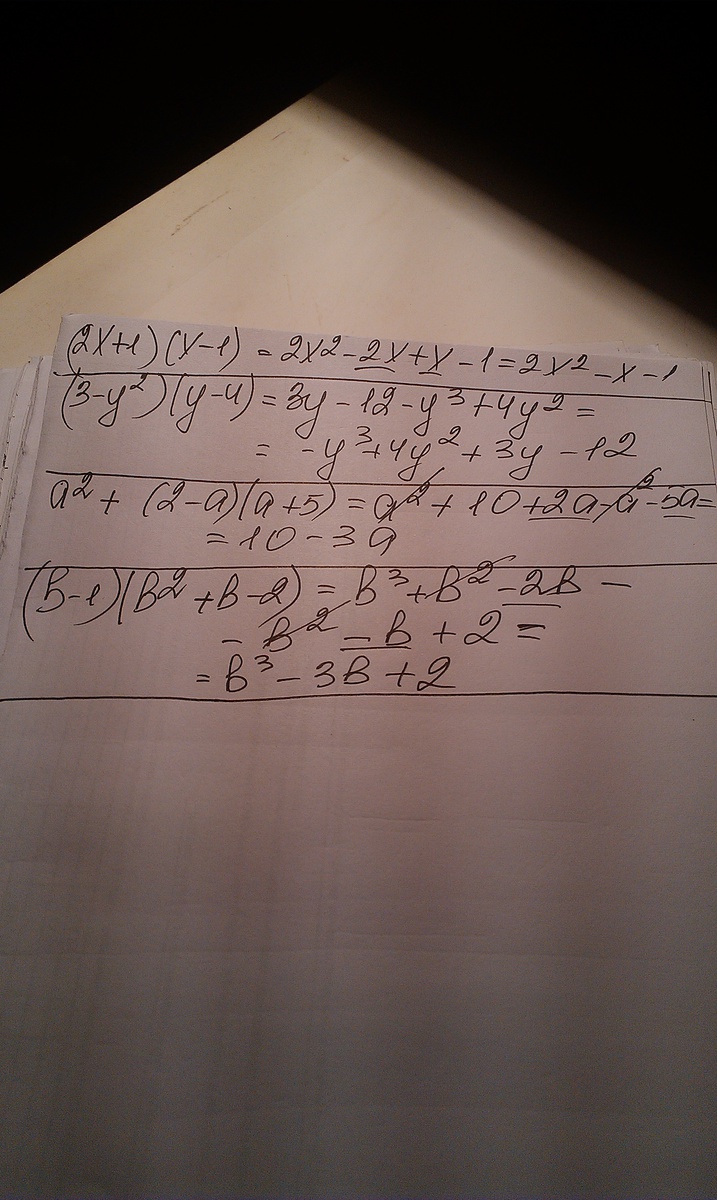 (2x+1)(x-1) = 2x²-2x+x-1=2x²-x-1
(3-y²)(y-4)=3y-12-y³+4y²=
= -y³+4y²+3y-12
a²+(2-a)(a+5)=a²+10+2a-a²-5a=
=10-3a
(b-1)(b²+b-2)=b³+b²-2b-
-b²-b+2=
=b³-3b+2